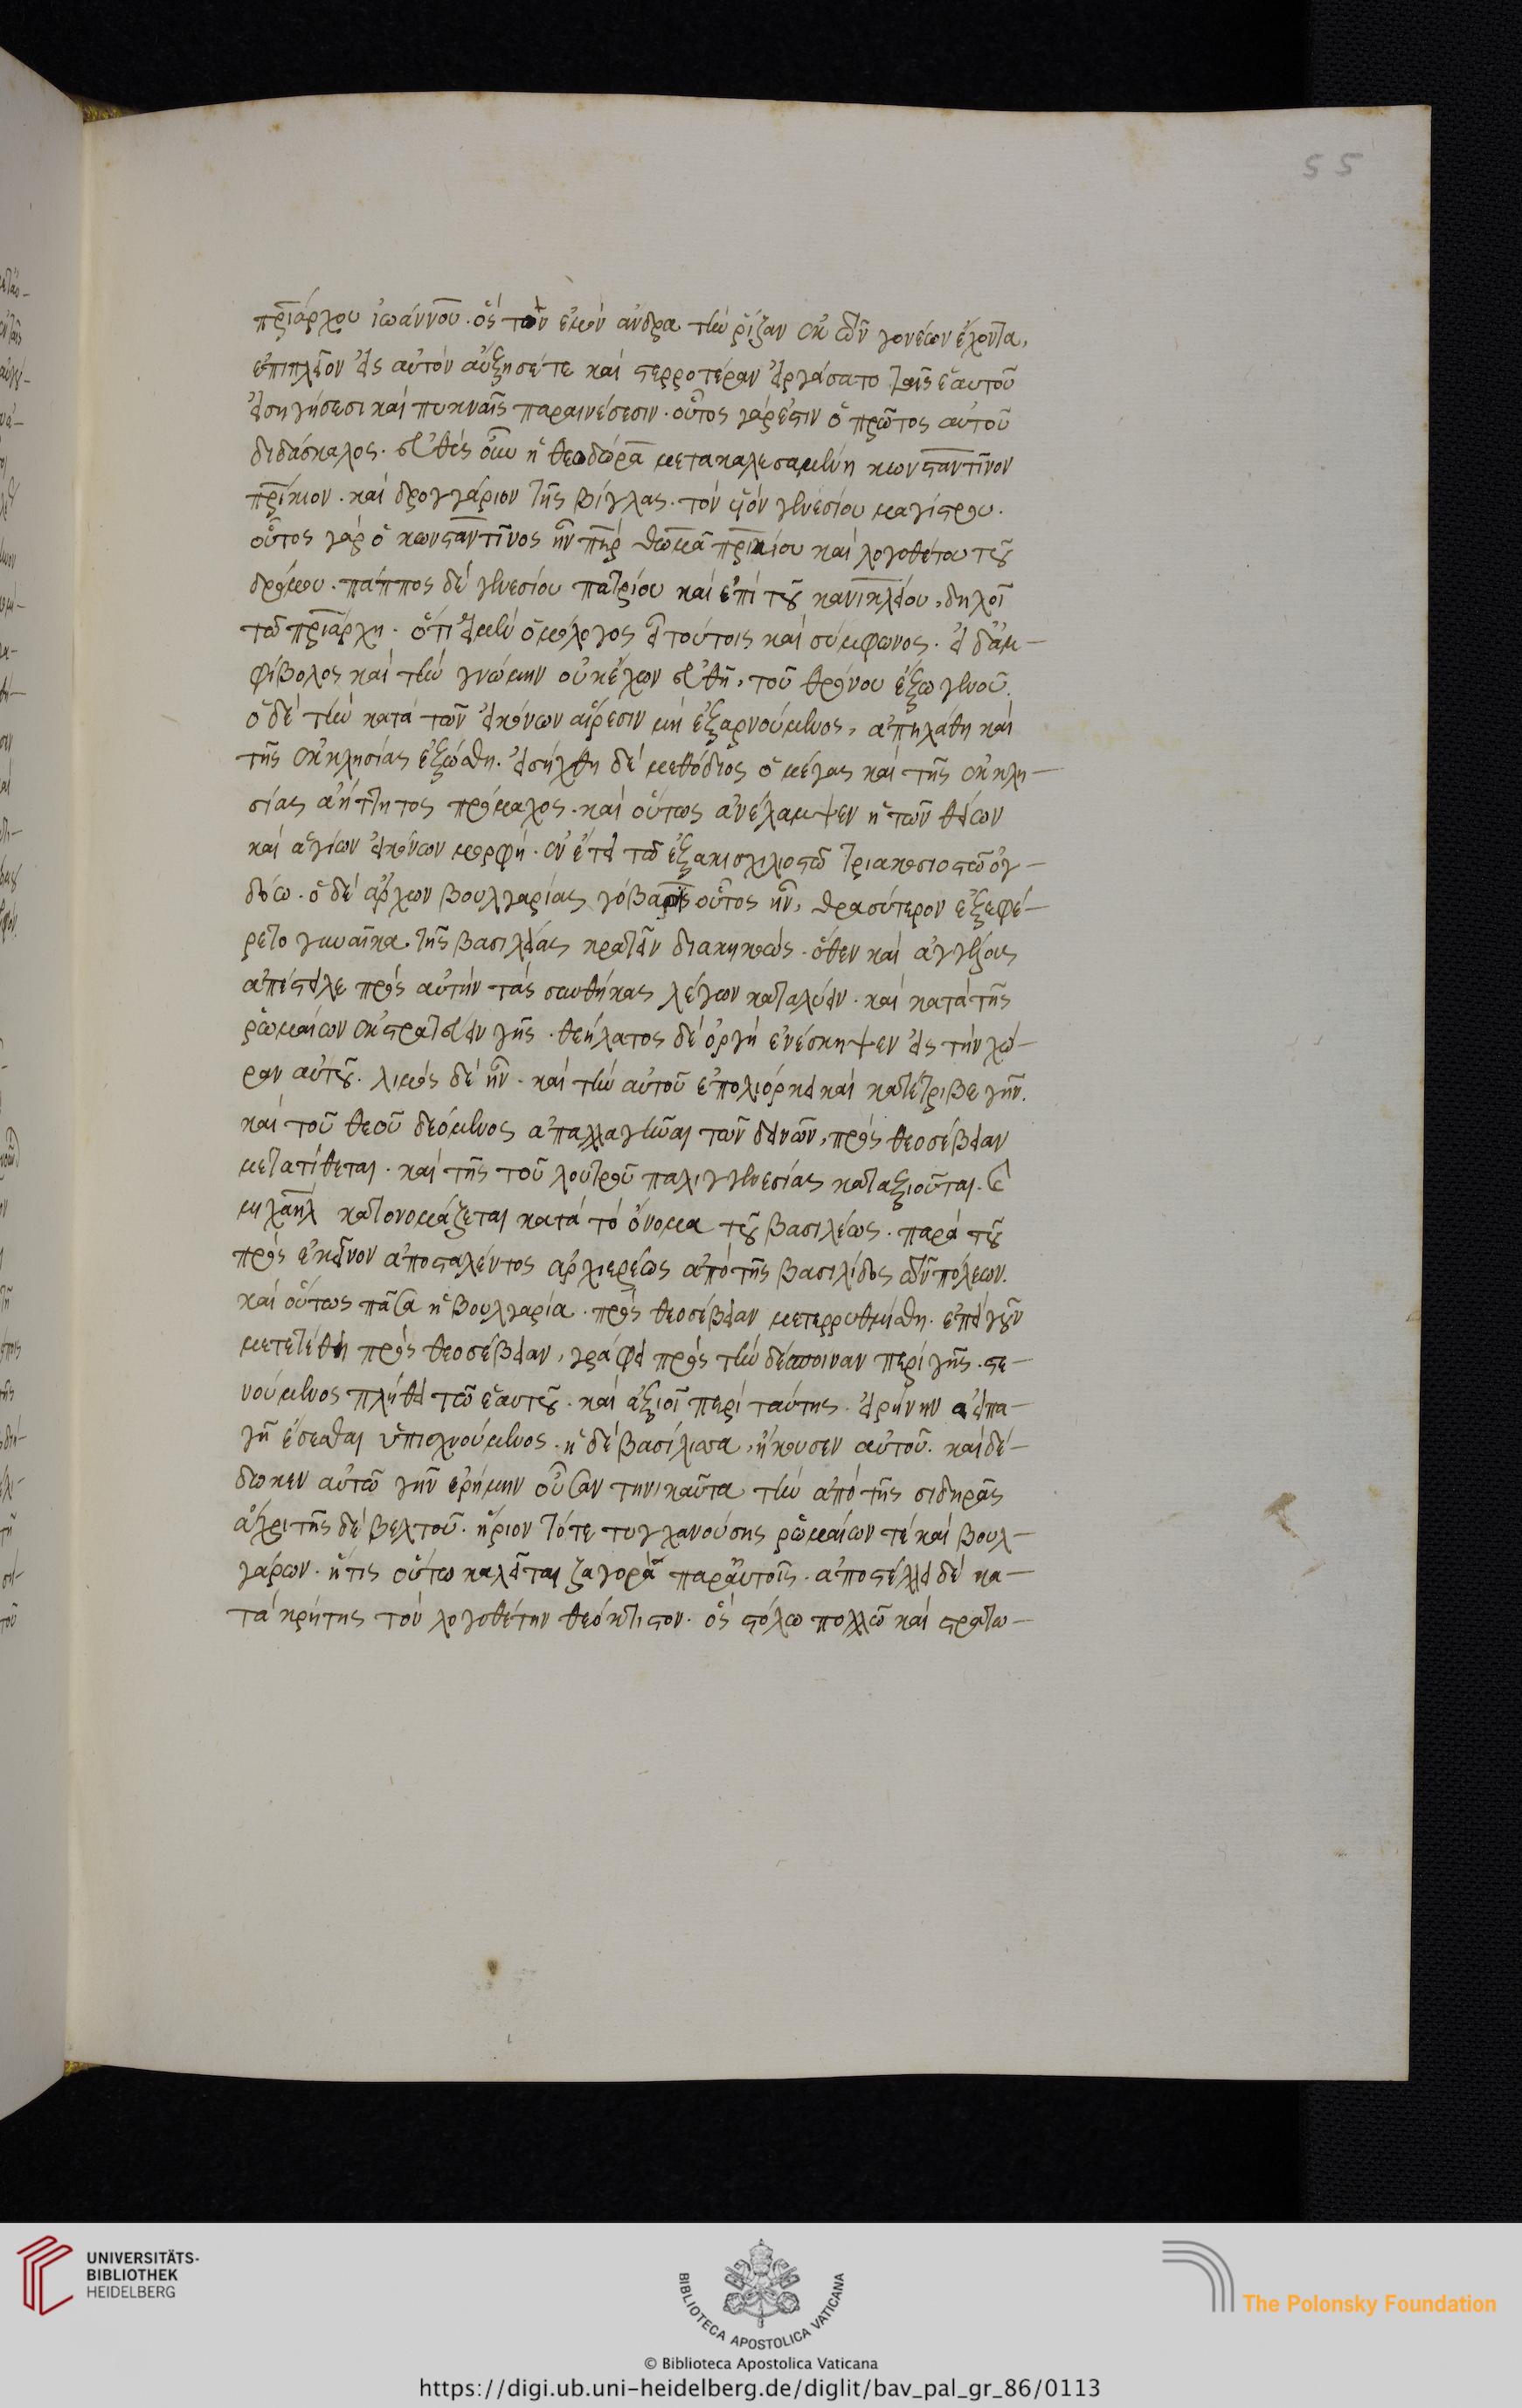 55
πριάρχου ἰωάννου. ὃς τὸν ἐμὸν ἄνδρα τὴν ῥίζαν ἐκ τῶν γονέων ἔχοντα,
ἐπιπλεῖον εἰς αὐτὸν αὔξησέ τε καὶ στερροτέραν εἰργάσατο ταῖς ἑαυτοῦ
εἰσηγήσεσι καὶ πυκναῖς παραινέσεσιν. οὗτος γάρ ἐστιν ὁ πρῶτος αὐτοῦ
διδάσκαλος. εὐθὺς οὖν ἡ θεοδώρα μετακαλεσαμένη κωνσταντῖνον
πρίκιον. καὶ δρογγάριον τῆς βίγλας. τὸν υἱὸν γενεσίου μαγίστρου.
οὗτος γὰρ ὁ κωνσταντῖνος ἦν πὴρ θωμᾶ πρικίου καὶ λογοθέτου τοῦ
δρόμου. πάππος δὲ γενεσίου πατρίου καὶ ἐπὶ τοῦ κανικλείου, δηλοῖ
τῶ πριάρχη. ὅτι εἰ μὲν ὁμόλογος εἶ τούτοις καὶ σύμφωνος. εἰ δ' ἀμ-
φίβολος καὶ τὴν γνώμην οὐκ ἔχων εὐθῆ, τοῦ θρόνου ἔξω γενοῦ.
ὁ δὲ τὴν κατὰ τῶν εἰκόνων αἵρεσιν μὴ ἐξαρνούμενος, ἀπηλάθη καὶ
τῆς ἐκκλησίας ἐξώσθη. εἰσήχθη δὲ μεθόδιος ὁ μέγας καὶ τῆς ἐκκλη-
σίας ἀήττητος πρόμαχος. καὶ οὕτως ἀνέλαμψεν ἡ τῶν θείων
καὶ ἁγίων εἰκόνων μορφή. ἐν ἔτει τῶ ἑξακισχιλιοστῶ τριακοσιοστῶ ὀγ-
δόω. ὁ δὲ ἄρχων βουλγαρίας γόβαρις οὗτος ἦν, θρασύτερον ἐξεφέ-
ρετο γυναῖκα τῆς βασιλείας κρατεῖν διακηκοώς. ὅθεν καὶ ἀγγέλους
ἀπέστειλε πρὸς αὐτὴν τὰς συνθήκας λέγων καταλύειν. καὶ κατὰ τῆς
ῥωμαίων ἐκστρατεύειν γῆς. θεήλατος δὲ ὀργὴ ἐνέσκηψεν εἰς τὴν χώ-
ραν αὐτοῦ. λιμὸς δὲ ἦν. καὶ τὴν αὐτοῦ ἐπολιόρκει καὶ κατέτριβε γῆν.
καὶ τοῦ θεοῦ δεόμενος ἀπαλλαγῆναι τῶν δεινῶν, πρὸς θεοσέβειαν
μετατίθεται. καὶ τῆς τοῦ λουτροῦ παλιγγενεσίας καταξιοῦται. καὶ
μιχαὴλ κατονομάζεται κατὰ τὸ ὄνομα τοῦ βασιλέως. παρὰ τοῦ
πρὸς ἐκεῖνον ἀποσταλέντος ἀρχιερέως ἀπὸ τῆς βασιλίδος τῶν πόλεων.
καὶ οὕτως πᾶσα ἡ βουλγαρία. πρὸς θεοσέβειαν μετερρυθμίσθη. ἐπεὶ γοῦν
μετετέθη πρὸς θεοσέβειαν, γράφει πρὸς τὴν δέσποιναν περὶ γῆς. στε-
νούμενος πλήθει τῶ ἑαυτοῦ. καὶ ἀξιοῖ περὶ ταύτης. εἰρήνην ἀειπα-
γῆ ἔσεσθαι ὑπισχνούμενος. ἡ δὲ βασίλισσα, ἤκουσεν αὐτοῦ. καὶ δέ-
δωκεν αὐτῶ γῆν ἐρήμην οὖσαν τηνικαῦτα τὴν ἀπὸ τῆς σιδηρᾶς
ἄχρι τῆς δὲ βελτοῦ. ἥριον τότε τυγχανούσης ῥωμαίων τὲ καὶ βουλ-
γάρων. ἥτις οὕτω καλεῖται ζαγορὰ παρ' αὐτοῖς. ἀποστέλλει δὲ κα-
τὰ κρήτης τὸν λογοθέτην θεόκτιστον. ὃς στόλω πολλῶ καὶ στρατω-
UNIVERSITÄTS-
BIBLIOTHEK
HEIDELBERG
BIBLIOTECA APOSTOLICA VATICANA
The Polonsky Foundation
© Biblioteca Apostolica Vaticana
https://digi.ub.uni-heidelberg.de/diglit/bav_pal_gr_86/0113